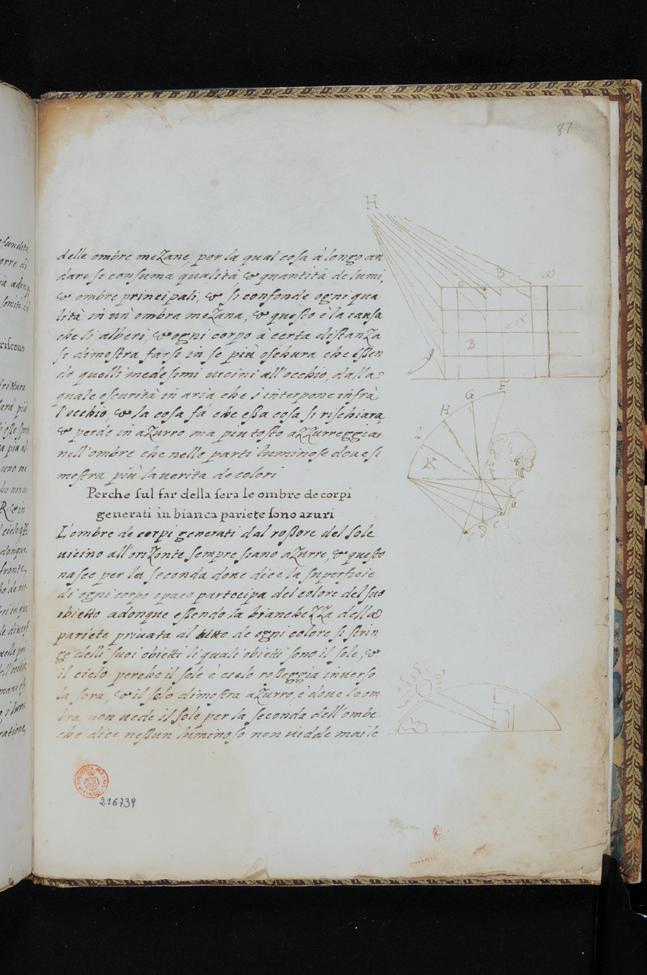 87
delle ombre meZane, per la qual cosa à longo an
dare si consuma qualità & quantità de lumi,
& ombre principali, & si confonde ogni qua
lità in un' ombra meZana, & questo è la causa
che li alberi, & ogni corpo à certa distanZa
si dimostra farse in se più oschura che essen
do quelli medesimi vicini all' occhio, dalla
quale escurità in aria che s' interpone infrà
l' occhio, & la cosa fa che essa cosa si rischiara,
& perde in aZurro ma piutosto aZZurreggia
nell' ombre che nelle parti luminose doue si
mostra più la verita de colori
Perche sul far della sera le ombre de corpi
generati in bianca pariete sono azuri
L'ombre de corpi generati dal rossore del sole
uicino all'oriZonte sempre seano aZurre, & questo
nasce per la seconda doue dice la superfitie
di ogni corpo opaco partecipa del colore del suo
obietto adonque essendo la biancheZZa della
pariete priuata al tutto de ogni colore si
delli suoi obietti li quali obietti sono il sole, &
il cielo perche il sole rosseggia inuerso
la sera, & il dimostra aZurro, e doue l'om
bra non uede il sole per la seconda dell'ombe
che dice nessun luminoso non uidde mai le
H
B
B
a
E
G
H
K
216739